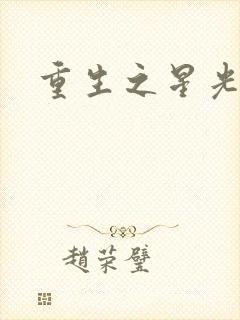 重生之星光
趙荣璧